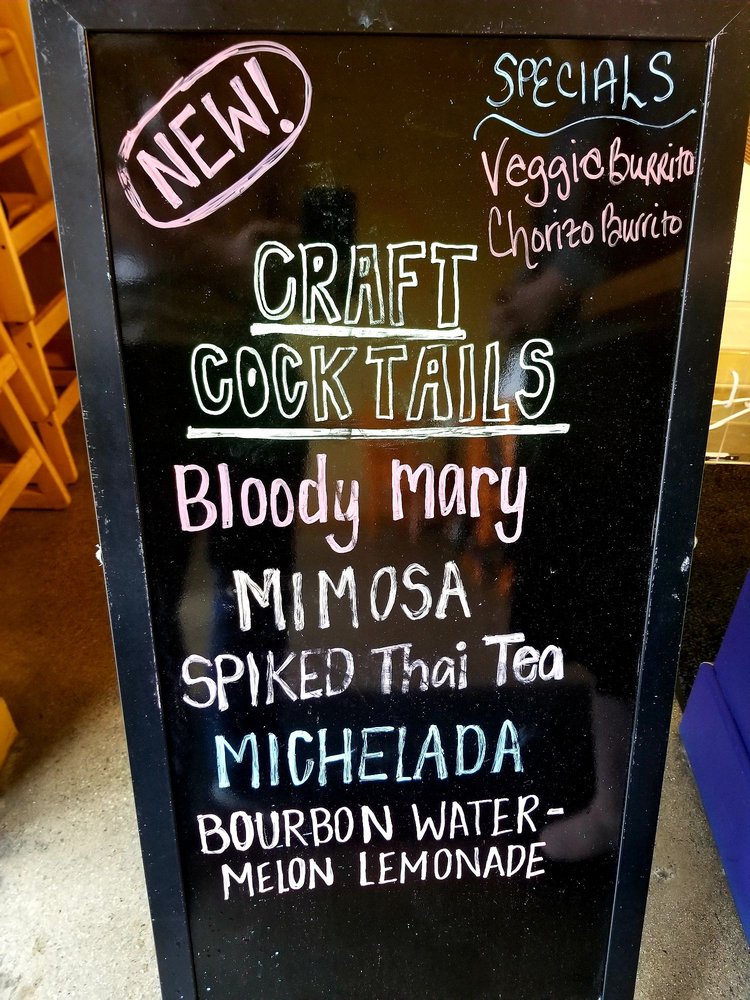 NEW!
SPECIALS
Veggie Burrito
Chorizo Burrito
CRAFT
COCKTAILS
Bloody Mary
MIMOSA
SPIKED Thai Tea
MICHELADA
BOURBON WATER-
MELON LEMONADE